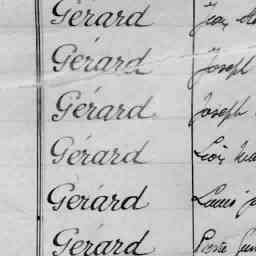 Gérard Jean
Gérard Joseph
Gérard Joseph
Gérard Léon
Gérard Louis
Gérard Pierre